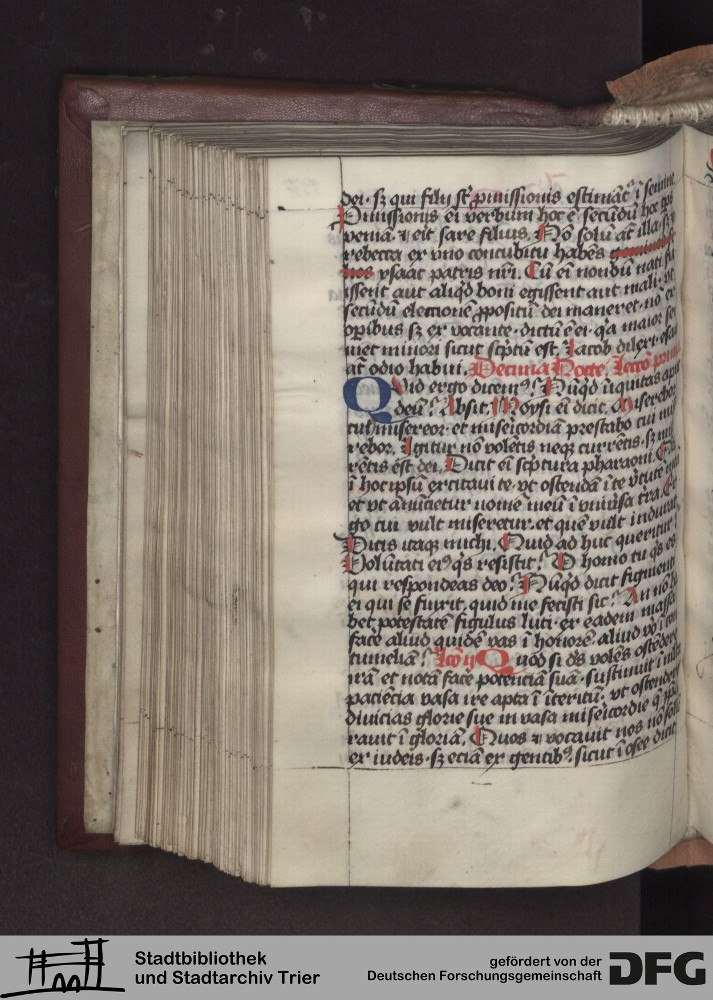 dei · sz qui filij st̄ pmissionis estimāt̄ ī semine
Pmissionis ei verbum hoc ē · secūdū hoc tps
veniā · ⁊ eit sare filius. Nō solū at̄ illa · sz ⁊
rebecca ex vno concubitu habēs
ysaac patris nr̄i. Cū ei nondū nati fu
issent aut aliqd boni egissent aut mali · vt
secūdū electionē ppositū dei maneret · nō ex
opibus sz ex vocante · dictū ē ei · qa maior ser
uiet minori sicut sc̄ptū est. Jacob dilexi · esau
at̄ odio habui. Decima Nocte. Lcō prima
Quid ergo dicem9? Nūqd iniquitas aput
deū? Absit. Moysi ei dicit. Miserebor
cui misereor · et misericordiā prestabo cui mise
rebor. Igitur nō volētis neqz currētis · sz mise
rētis ēst dei. Dicit ei sc̄ptura pharaoni. Quia
ī hoc ipsū excitaui te · vt ostendā ī te v̄tutē meā
et vt ānūcietur nomē meū ī vniūsa t̄ra. Er
go cui vult miseretur · et quē vult indurat.
Dicis itaqz michi. Quid ad huc queritur?
Volūtati ei9 qs resistit? O homo tu qs es
qui respondeas deo? Nūqd dicit figmentū
ei qui se finxit · quid me fecisti sic? An nō ha
bet potestatē figulus luti · ex eadem massa
face aliud quidē vas ī honorē aliud vō ī con
tumeliā? Lcō ij Quod si ds̄ volēs ostēdere
irā et notā face potenciā suā · sustinuit ī multa
paciēcia vasa ire apta ī īteritū · vt ostenderet
diuicias glorie sue in vasa misericordie q̄ ppa
rauit ī gloriā. Quos ⁊ vocauit nos nō solū
ex iudeis · sz eciā ex gentib9 · sicut ī osee dicit
Stadtbibliothek
und Stadtarchiv Trier
gefördert von der
Deutschen Forschungsgemeinschaft
DFG